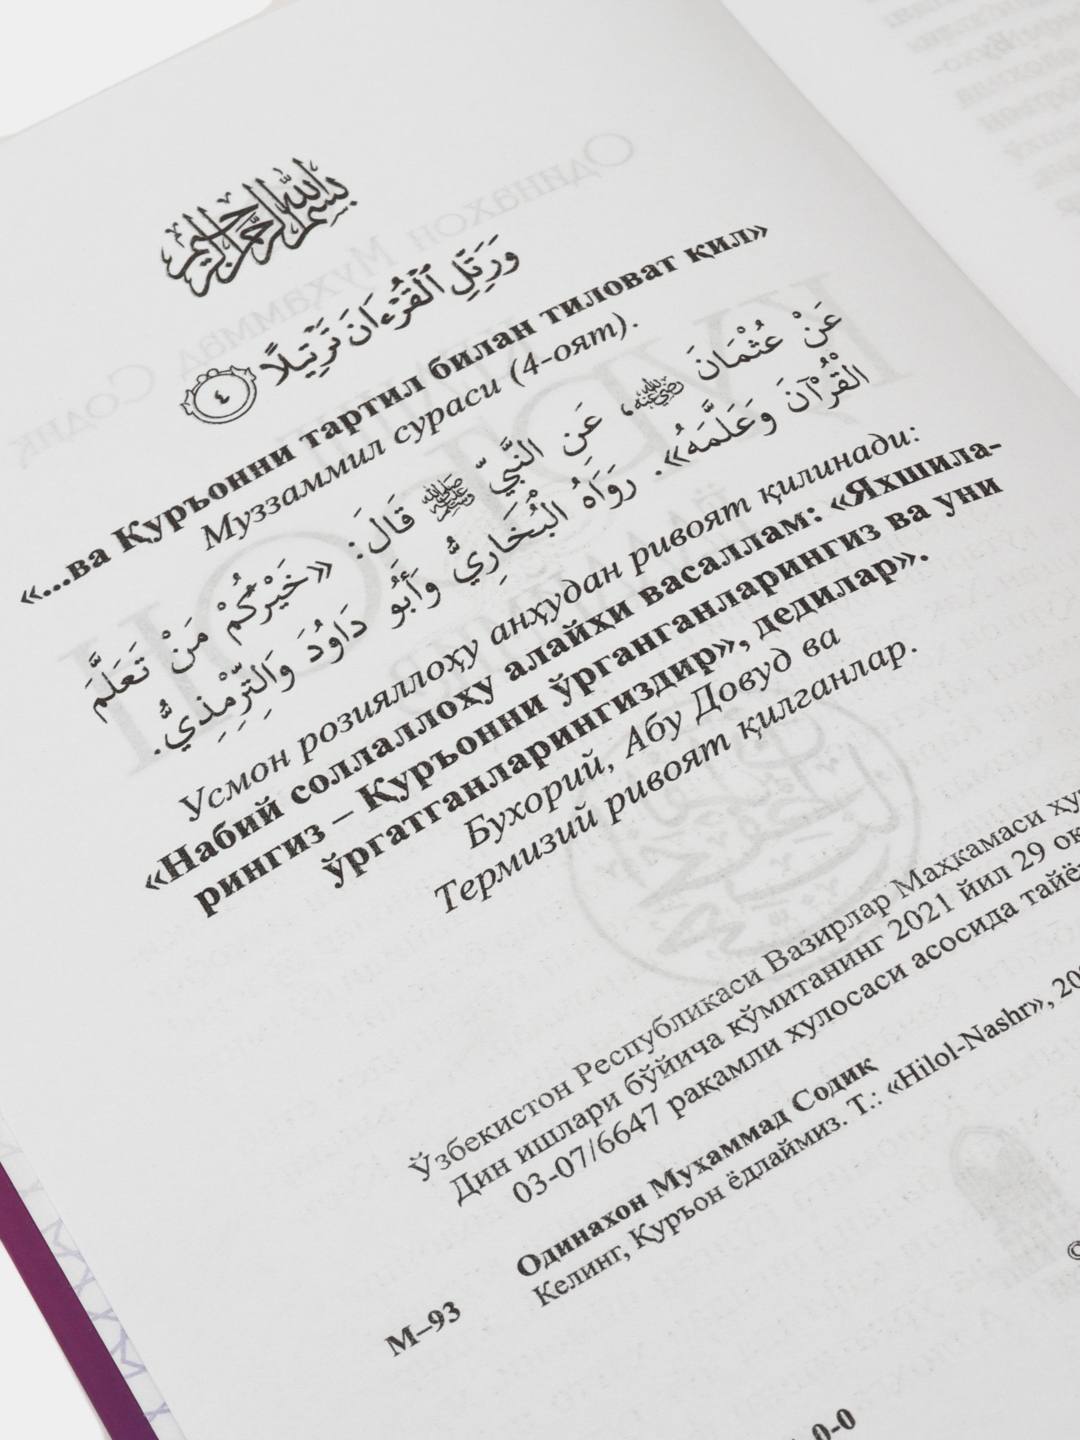 بسم الله الرحمن الرحيم
وَرَتِّلِ ٱلۡقُرۡءَانَ تَرۡتِيلًا ٤
«...ва Қуръонни тартил билан тиловат қил»
Муззаммил сураси (4-оят).
عَنْ عُثْمَانَ رضي الله عنه، عَنِ النَّبِيِّ ﷺ قَالَ: «خَيْرُكُمْ مَنْ تَعَلَّمَ
الْقُرْآنَ وَعَلَّمَهُ». رَوَاهُ الْبُخَارِيُّ وَأَبُو دَاوُدَ وَالتِّرْمِذِيُّ.
Усмон розияллоҳу анҳудан ривоят қилинади:
«Набий соллаллоҳу алайҳи васаллам: «Яхшила-
рингиз – Қуръонни ўрганганларингиз ва уни
ўргатганларингиздир», дедилар».
Бухорий, Абу Довуд ва
Термизий ривоят қилганлар.
Ўзбекистон Республикаси Вазирлар Маҳкамаси
Дин ишлари бўйича қўмитанинг 2021 йил 29
03-07/6647 рақамли хулосаси асосида
Одинахон Муҳаммад Содиқ
Келинг, Қуръон ёдлаймиз. Т.: «Hilol-Nashr»,
М–93
©
0-0